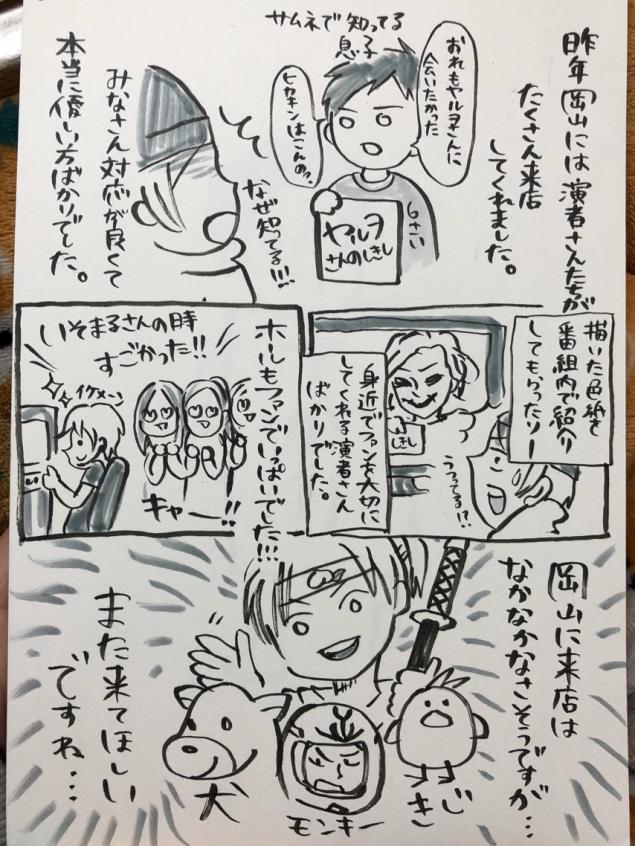 昨年岡山には演者さんたちが
たくさん来店
してくれました。
サムネで知ってる
息子
おれもヤルヲさんに
会いたかった
ヒカキンはこんの?
6さい
ヤルヲ
さんのしきし
なぜ知ってる!!!
みなさん対応が良くて
本当に優しい方ばかりでした。
描いた色紙を
番組内で紹介
してもらったりー
うつってる!?
しきし
身近でファンを大切に
してくれる演者さん
ばかりでした。
ホールもファンでいっぱいでした!!!
いそまるさんの時
すごかった!!
イケメーン
キャー!!
岡山に来店は
なかなかなさそうですが…
また来てほしい
ですね…
犬
モンキー
きじ